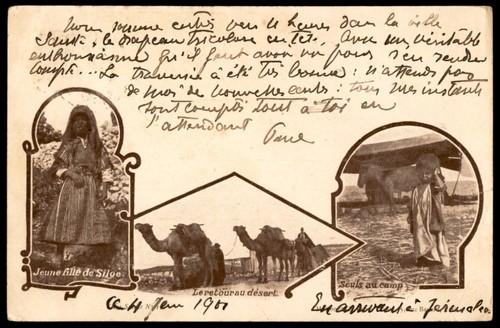 Nous sommes entrés vers 11 heures dans la ville
Sainte, le drapeau tricolore en tête. Avec un véritable
enthousiasme qu'il faut avoir vu pour s'en rendre
compte... La traversée a été très bonne : n'attends pas
de moi de nouvelles cartes : tous mes instants
sont comptés tout à toi en
l'attendant
Jeune fille de Siloé
Le retour au désert.
Seuls au camp
Ce 4 1901
En arrivant à Jérusalem